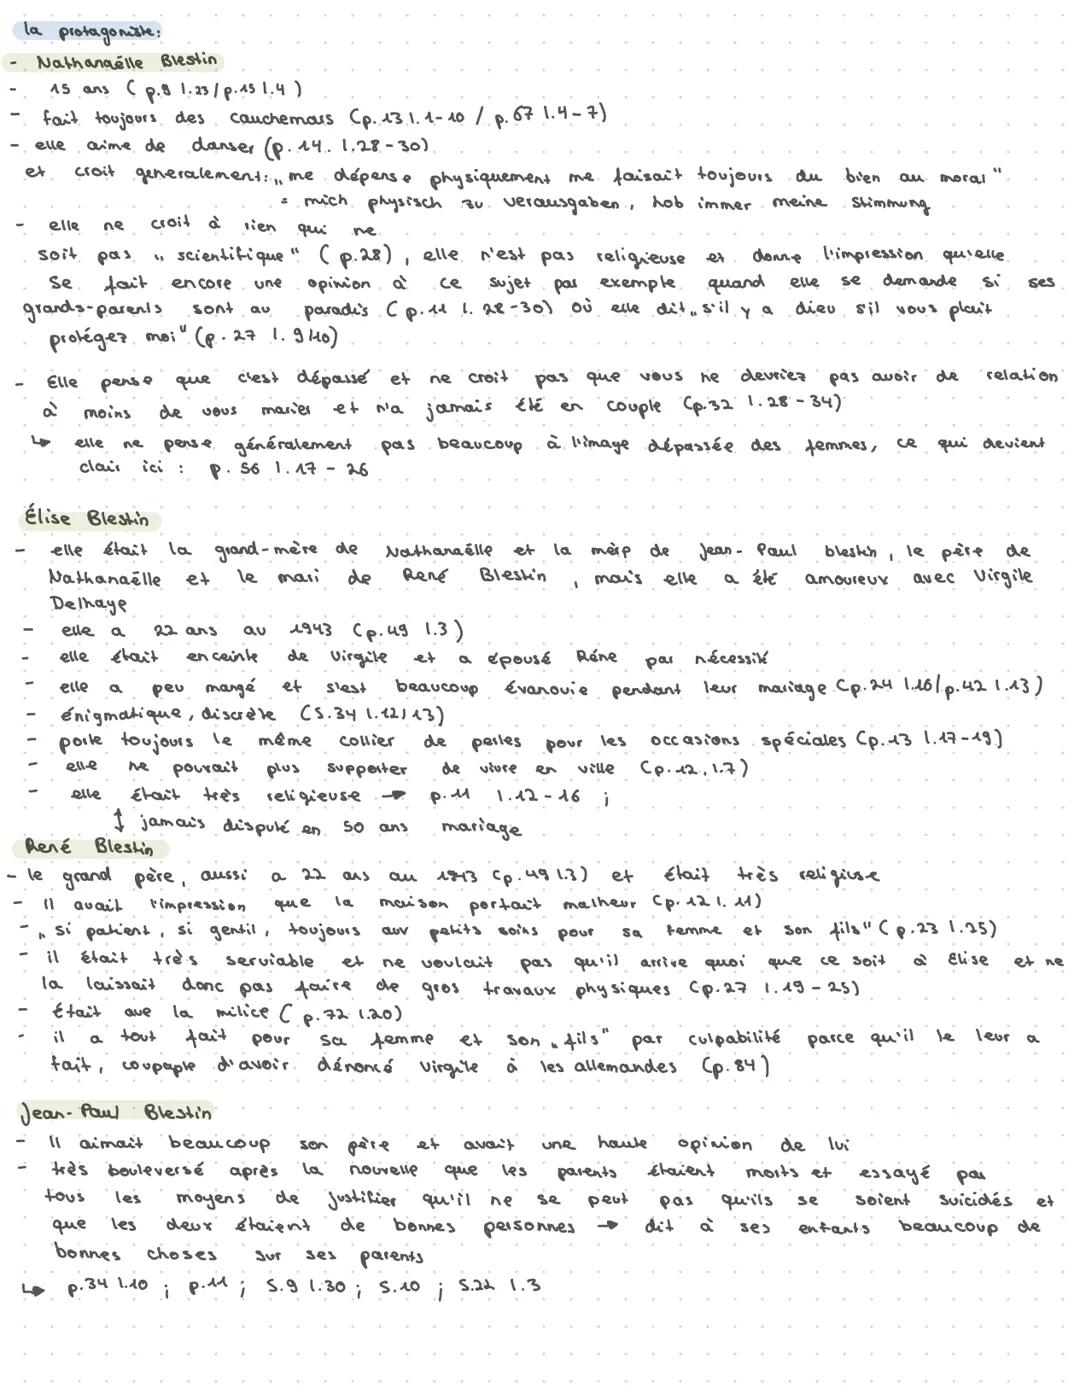 la protagoniste:
- Nathanaëlle Blestin
- 15 ans (p.9 l.23/p.15 l.4)
- fait toujours des cauchemars (p.13 l.1-10 / p.67 l.4-7)
- elle aime de danser (p.14. l.28-30)
et croit generalement: „me dépense physiquement me faisait toujours du bien au moral"
= mich physisch zu verausgaben, hob immer meine Stimmung
- elle ne croit à rien qui ne
soit pas „scientifique" (p.28), elle n'est pas religieuse et donne l'impression qu'elle
se fait encore une opinion à ce sujet par exemple quand elle se demande si ses
grands-parents sont au paradis (p.11 l.28-30) où elle dit „s'il y a dieu s'il vous plait
protégez moi" (p.27 l.9/10)
- Elle pense que c'est dépassé et ne croit pas que vous ne devriez pas avoir de relation
à moins de vous marier et n'a jamais été en couple (p.32 l.28-34)
↳ elle ne pense généralement pas beaucoup à l'image dépassée des femmes, ce qui devient
clair ici : p.56 l.17-26
Élise Blestin
- elle était la grand-mère de Nathanaëlle et la mèrp de Jean-Paul blestin, le père de
Nathanaëlle et le mari de René Blestin, mais elle a été amoureux avec Virgile
Delhaye
- elle a 22 ans au 1943 (p.49 l.3)
- elle était enceinte de Virgile et a épousé Réne par nécessité
- elle a peu mangé et s'est beaucoup évanouie pendant leur mariage (p.24 l.16/p.42 l.13)
- énigmatique, discrète (S.34 l.12/13)
- porte toujours le même collier de perles pour les occasions spéciales (p.13 l.17-19)
- elle ne pouvait plus supporter de vivre en ville (p.12, l.7)
- elle était très religieuse → p.11 l.12-16 ;
↕ jamais disputé en 50 ans mariage
René Blestin
- le grand père, aussi a 22 ans au 1943 (p.49 l.3) et était très religiuse
- Il avait l'impression que la maison portait malheur (p.12 l.11)
- „si patient, si gentil, toujours aux petits soins pour sa femme et son fils" (p.23 l.25)
- il était très serviable et ne voulait pas qu'il arrive quoi que ce soit à Elise et ne
la laissait donc pas faire de gros travaux physiques (p.27 l.19-25)
- était ave la milice (p.72 l.20)
- il a tout fait pour sa femme et son „fils" par culpabilité parce qu'il le leur a
fait, coupaple d'avoir dénoncé Virgile à les allemandes (p.84)
Jean-Paul Blestin
- Il aimait beaucoup son père et avait une haute opinion de lui
- très bouleversé après la nouvelle que les parents étaient morts et essayé par
tous les moyens de justifier qu'il ne se peut pas qu'ils se soient suicidés et
que les deux étaient de bonnes personnes → dit à ses enfants beaucoup de
bonnes choses sur ses parents
↳ p.34 l.10 ; p.11 ; S.9 l.30 ; S.10 ; S.22 l.3